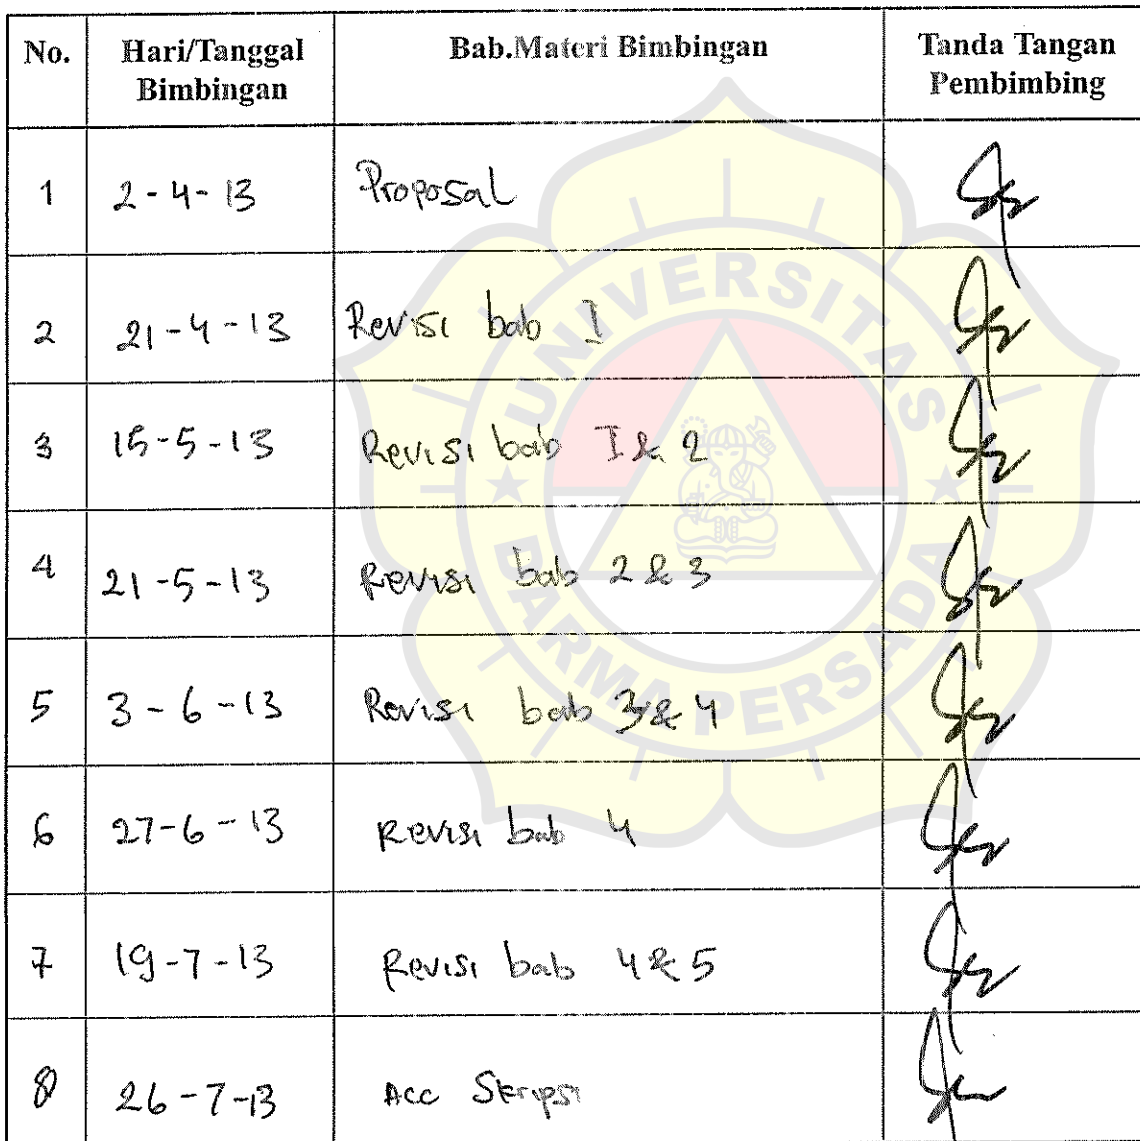 No. Hari/Tanggal Bimbingan Bab.Materi Bimbingan Tanda Tangan Pembimbing
1 2-4-13 Proposal
2 21-4-13 Revisi bab I
3 15-5-13 Revisi bab I & 2
4 21-5-13 Revisi bab 2 & 3
5 3-6-13 Revisi bab 3 & 4
6 27-6-13 Revisi bab 4
7 19-7-13 Revisi bab 4 & 5
8 26-7-13 Acc Skripsi
UNIVERSITAS
DARMA PERSADA